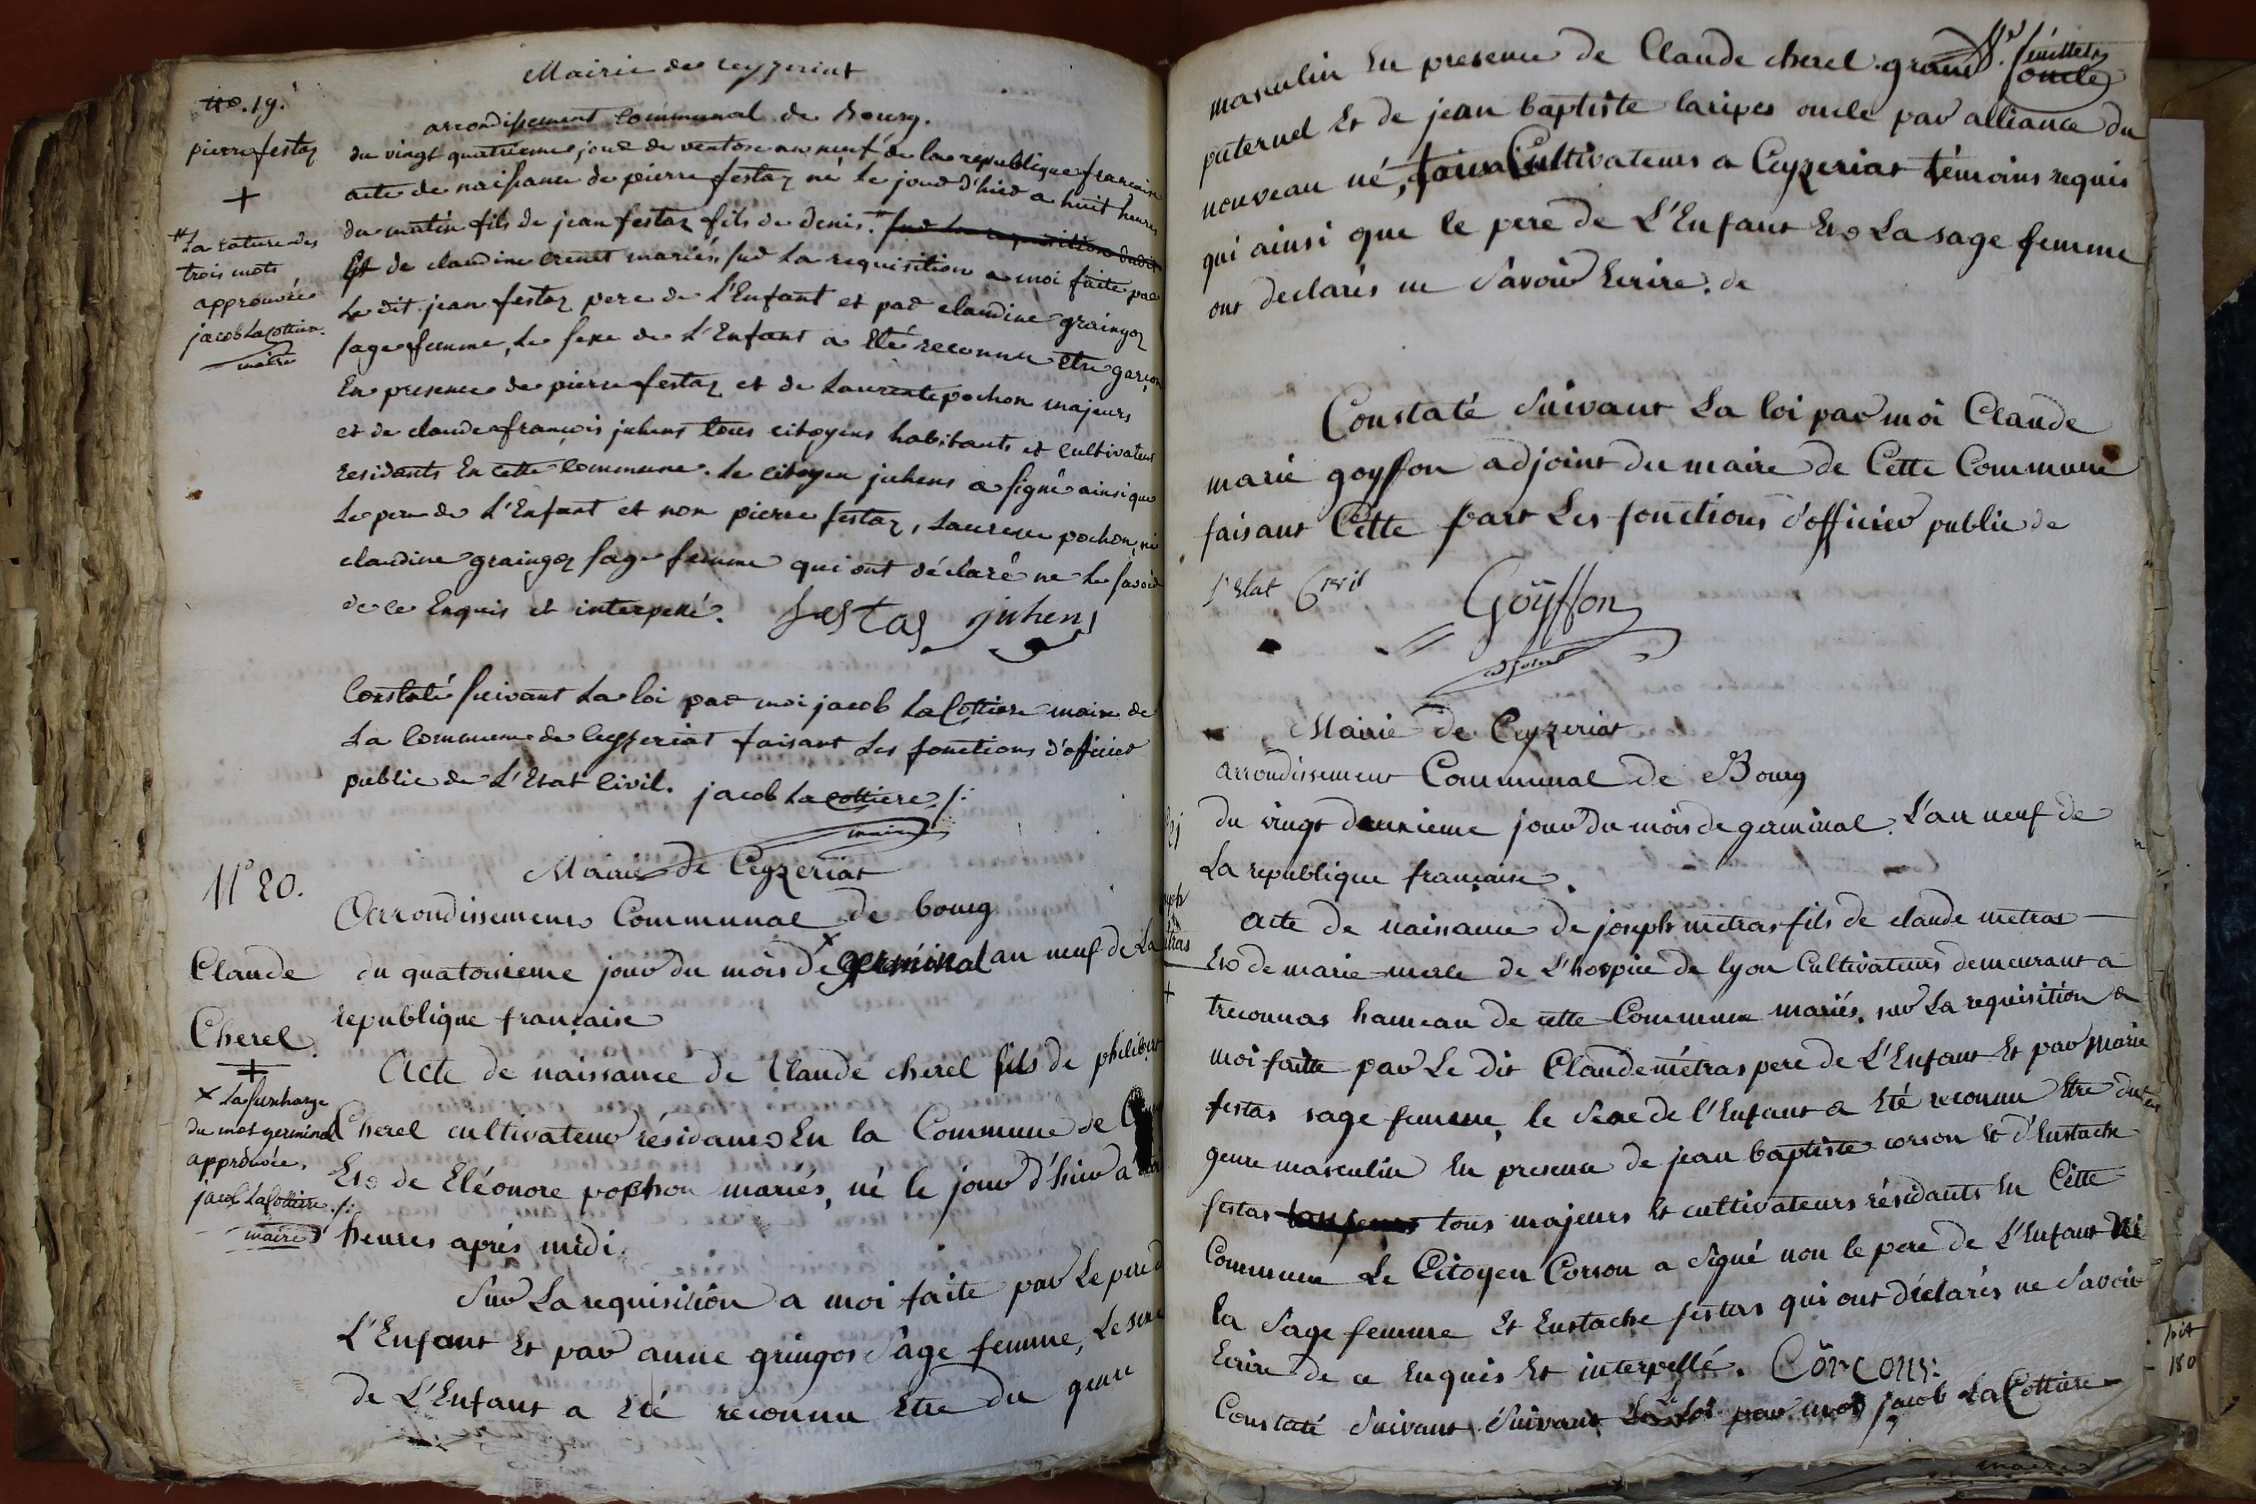 Mairie de ceyzeriat
n°. 19.
arrondissement communal de Bourg.
pierre festaz
du vingt quatrieme jour de ventose an neuf de la republique francaise
acte de naissance de pierre festaz né le jour d'hier a huit heures
du matin fils de jean festaz fils de denis. # sur la requisition dudit
Et de claudine crenet mariés, sur La requisition a moi faite par
Le dit jean festaz pere de L'Enfant et par claudine graingoz
sage femme, Le sexe de L'Enfant a Eté reconnu etre garçon
En presence de pierre festaz et de Laurent pochon majeurs
et de claude françois juhens tous citoyens habitants et cultivateurs
residants En cette commune. Le citoyen juhens a signé ainsi que
Le pere de L'Enfant et non pierre festaz, Laurent pochon, ni
claudine graingoz sage femme qui ont déclaré ne Le savoir
de ce Enquis et interpellé. festas juhens
# La rature des
trois mots
approuvée
jacob LaCottiere
maire
Constaté suivant La loi par moi jacob LaCottiere maire de
La commune de Ceyzeriat faisant Les fonctions d'officier
public de L'Etat Civil. jacob LaCottiere ./.
maire
Mairie de Ceyzeriat
N° 20.
Arrondissement Communal de bourg
Claude
Cherel.
du quatorzieme jour du mois de × germinal an neuf de La
republique française
Acte de naissance de Claude cherel fils de philibert
Cherel cultivateur résidant En la Commune de
Et de Eléonore pochon mariés, né le jour d'hier a
heures aprés midi.
Sur La requisition a moi faite par Le pere d
L'Enfant Et par anne gringoz Sage femme, Le sexe
de L'Enfant a Eté reconnu Etre du genre
× La surcharge
du mot germinal
approuvée.
jacob LaCottiere ./.
maire
masculin En presence de Claude cherel grand oncle
paternel Et de jean baptiste laripes oncle par alliance du
nouveau né, tous Cultivateurs a Ceyzeriat témoins requis
qui ainsi que le pere de L'Enfant Et La sage femme
ont declarés ne Savoir Ecrire. de
Constaté Suivant La loi par moi Claude
marie goyffon adjoint du maire de Cette Commune
faisant Cette part Les fonctions d'officier public de
l'Etat Civil
Goÿffon
adjoint
Mairie de Ceyzeriat
arrondissement Communal de Bourg
du vingt deuxieme jour du mois de germinal. L'an neuf de
La republique française.
Acte de naissance de joseph metras fils de claude metras
Et de marie merle de L'hospice de lyon Cultivateurs demeurant a
treconnas hameau de cette Commune mariés. sur La requisition a
moi faitte par Le dit Claude métras pere de L'Enfant Et par Marie
festas sage femme, le Sexe de l'Enfant a Eté reconnu Etre du
genre masculin En presence de jean baptiste corson Et d'Eustache
festas tous majeurs Et cultivateurs résidants En Cette
Commune Le Citoyen Corson a Signé non le pere de L'Enfant Ni
la Sage femme Et Eustache festas qui ont déclarés ne Savoir
Ecrire de ce Enquis Et interpellé. Corçon
Constaté Suivant Suivant La Loi par moi jacob LaCottiere
maire